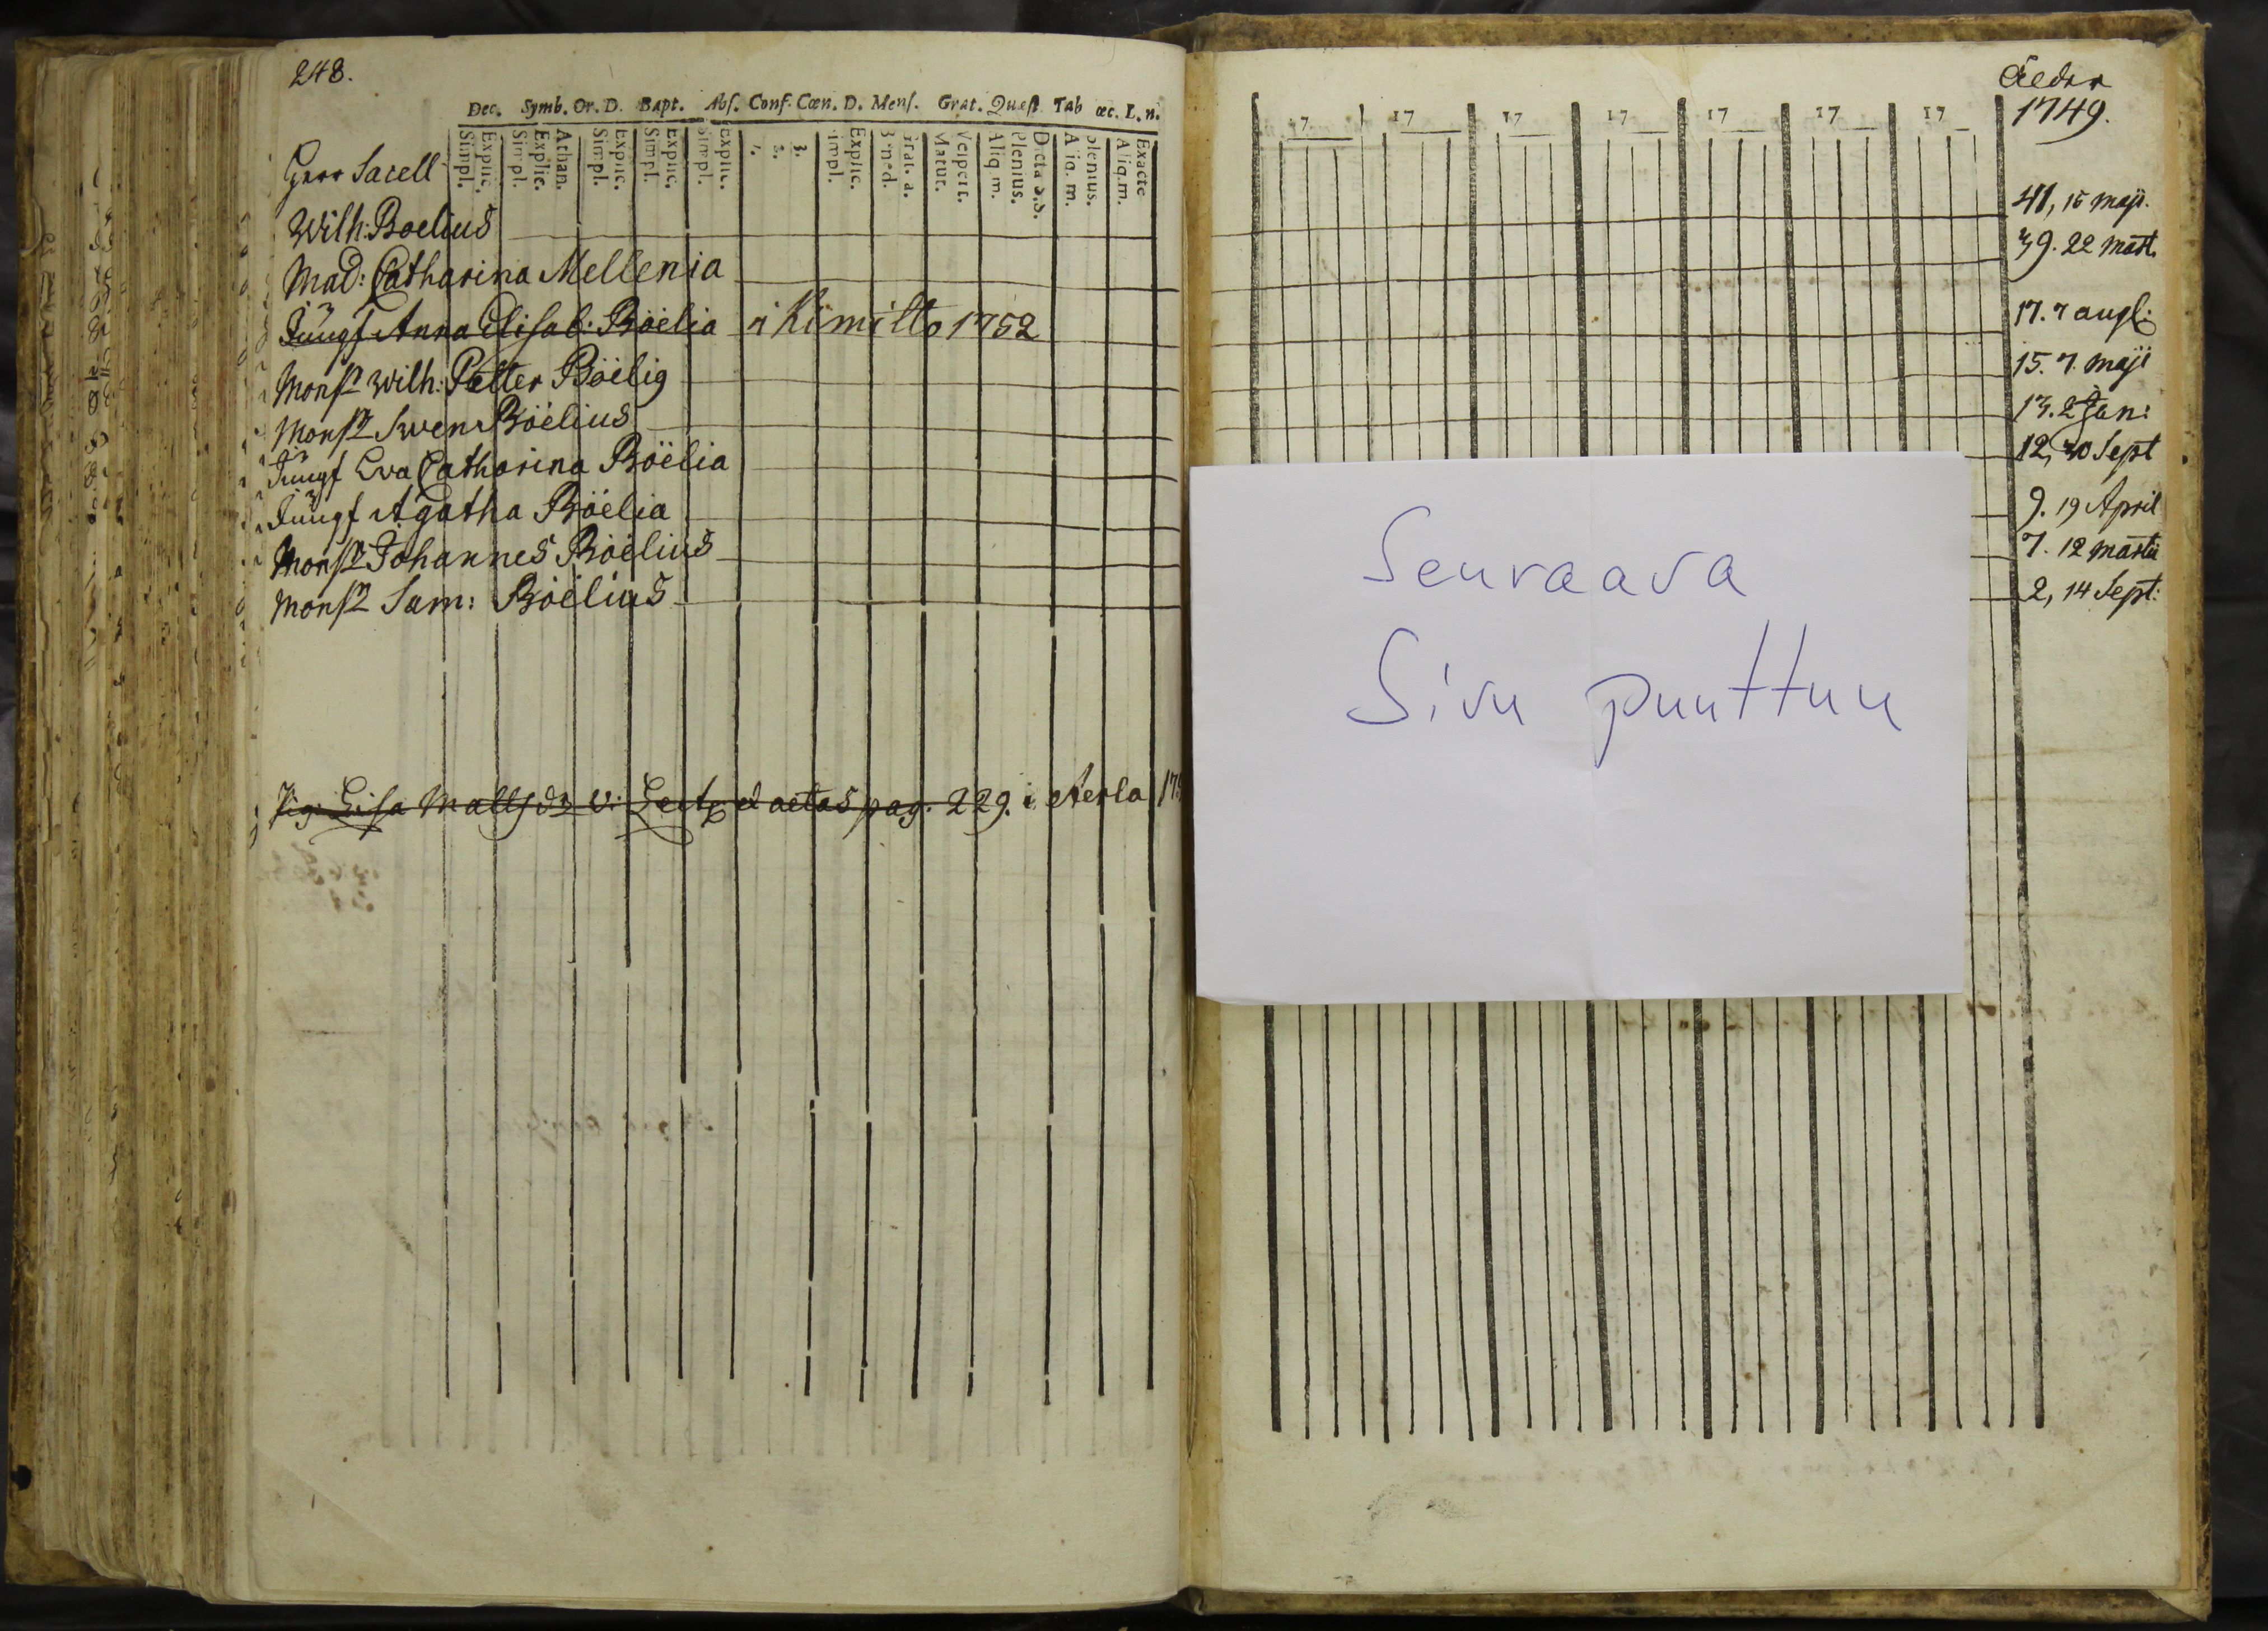 248.
Dec. Symb. Or. D. Bapt. Abs. Conf. Cœn. D. Mens. Grat. Quæst Tab œc. L. n.
Simpl. Explic. Simpl. Explic. Athan. Simpl. Explic. Simpl. Explic. Simpl. Explic. 1. 2. 3. Simpl. Explic. Matut. Vespert. Aliq. m. Plenius. Dicta S.S. Aliq. m. Plenius. Aliq. m. Exacte
Herr Sacell
Wilh: Boelius
Mad: Catharina Mellenia
Jungf Anna Elisab: Böelia i Kimitto 1752
Monsr Wilh: Petter Böelig
Monsr Swen Böelius
Jungf Eva Catharina Böelia
Jungf Agatha Böelia
Monsr Johannes Böelius
Monsr Sam: Böelius
Pig: Lisa Matts dr v: Lect et aetas pag. 229. i
17 17 17 17 17 17 17
Ålder
1749.
41, 15 maji.
39. 22 mart.
17. 7 aug:
15. 7. maji
13. 2 Jan:
12, 30 Sept
9. 19 April
7. 12 martii
2, 14 Sept:
Seuraava
Sivu puuttuu